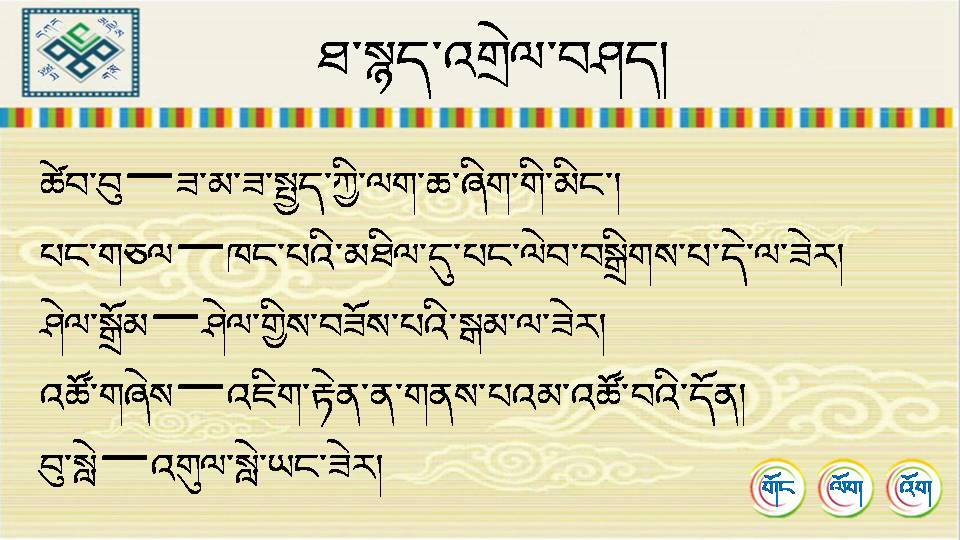 ཐ་སྙད་འགྲེལ་བཤད།
ཚེབ་བུ—ཟ་མ་ཟ་སྤྱད་ཀྱི་ལག་ཆ་ཞིག་གི་མིང་།
པང་གཅལ—ཁང་པའི་མཐིལ་དུ་པང་ལེབ་བསྒྲིགས་པ་དེ་ལ་ཟེར།
ཤེལ་སྒྲོམ—ཤེལ་གྱིས་བཟོས་པའི་སྒམ་ལ་ཟེར།
འཚོ་གཞེས—འཇིག་རྟེན་ན་གནས་པའམ་འཚོ་བའི་དོན།
བུ་སླེ—འགུལ་སླེ་ཡང་ཟེར།
གོང
ལོག
འོག